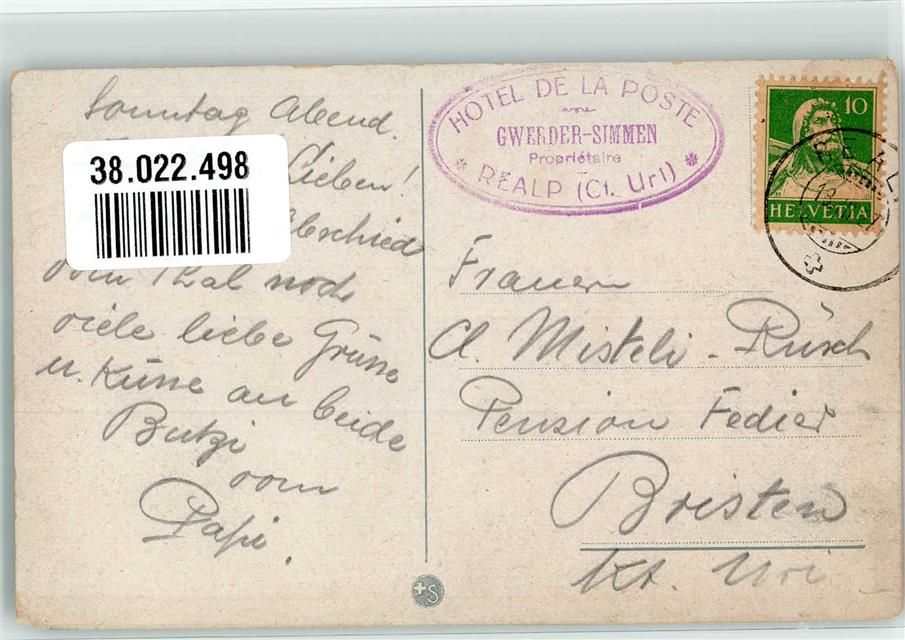 Sonntag Abend.
Lieben!
38.022.498
Abschied
vom Thal noch
viele liebe Grüsse
u. Küsse an beide
Butzi
vom
Papi.
HOTEL DE LA POSTE
GWERDER-SIMMEN
Propriétaire
* REALP (Ct. Uri) *
10
HELVETIA
REALP
Frauen
Cl. Misteli-Rüsch
Pension Fedier
Bristen
Kt. Uri
+S